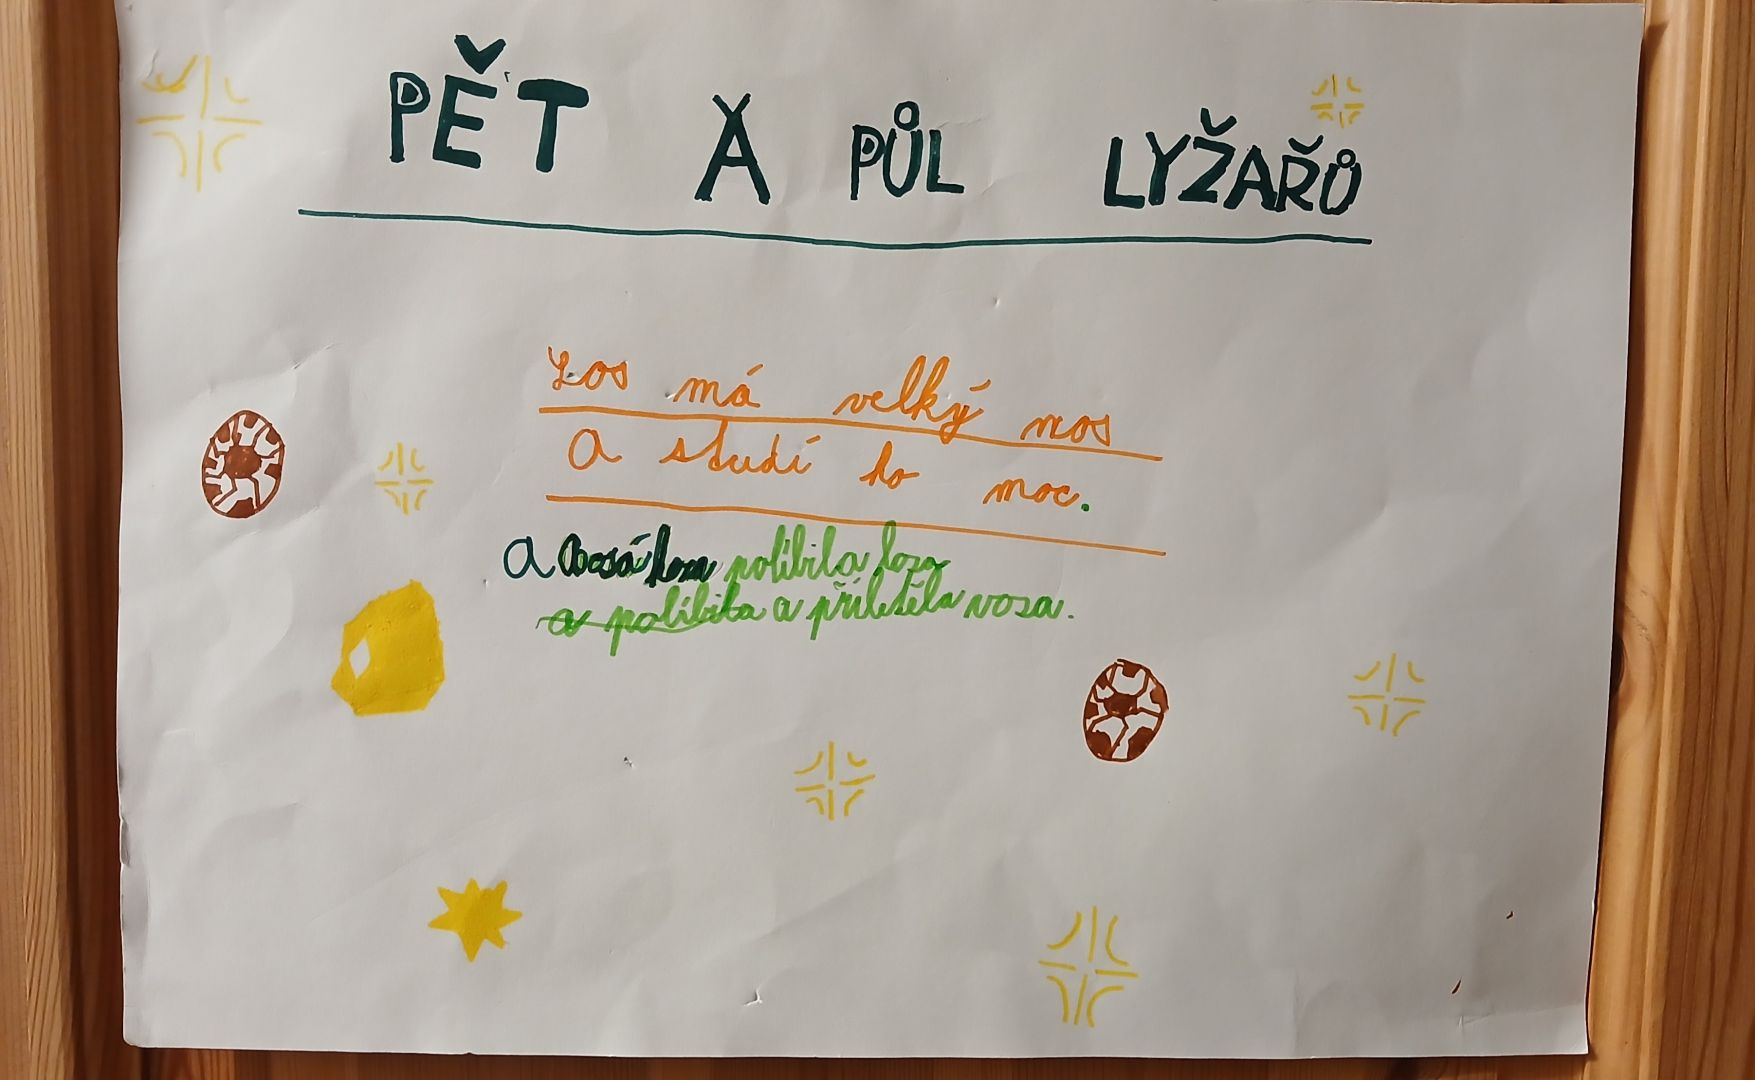 PĚT A PŮL LYŽAŘŮ
Los má velký nos
a studí ho moc.
a políbila losa
a políbila a přiletěla vosa.